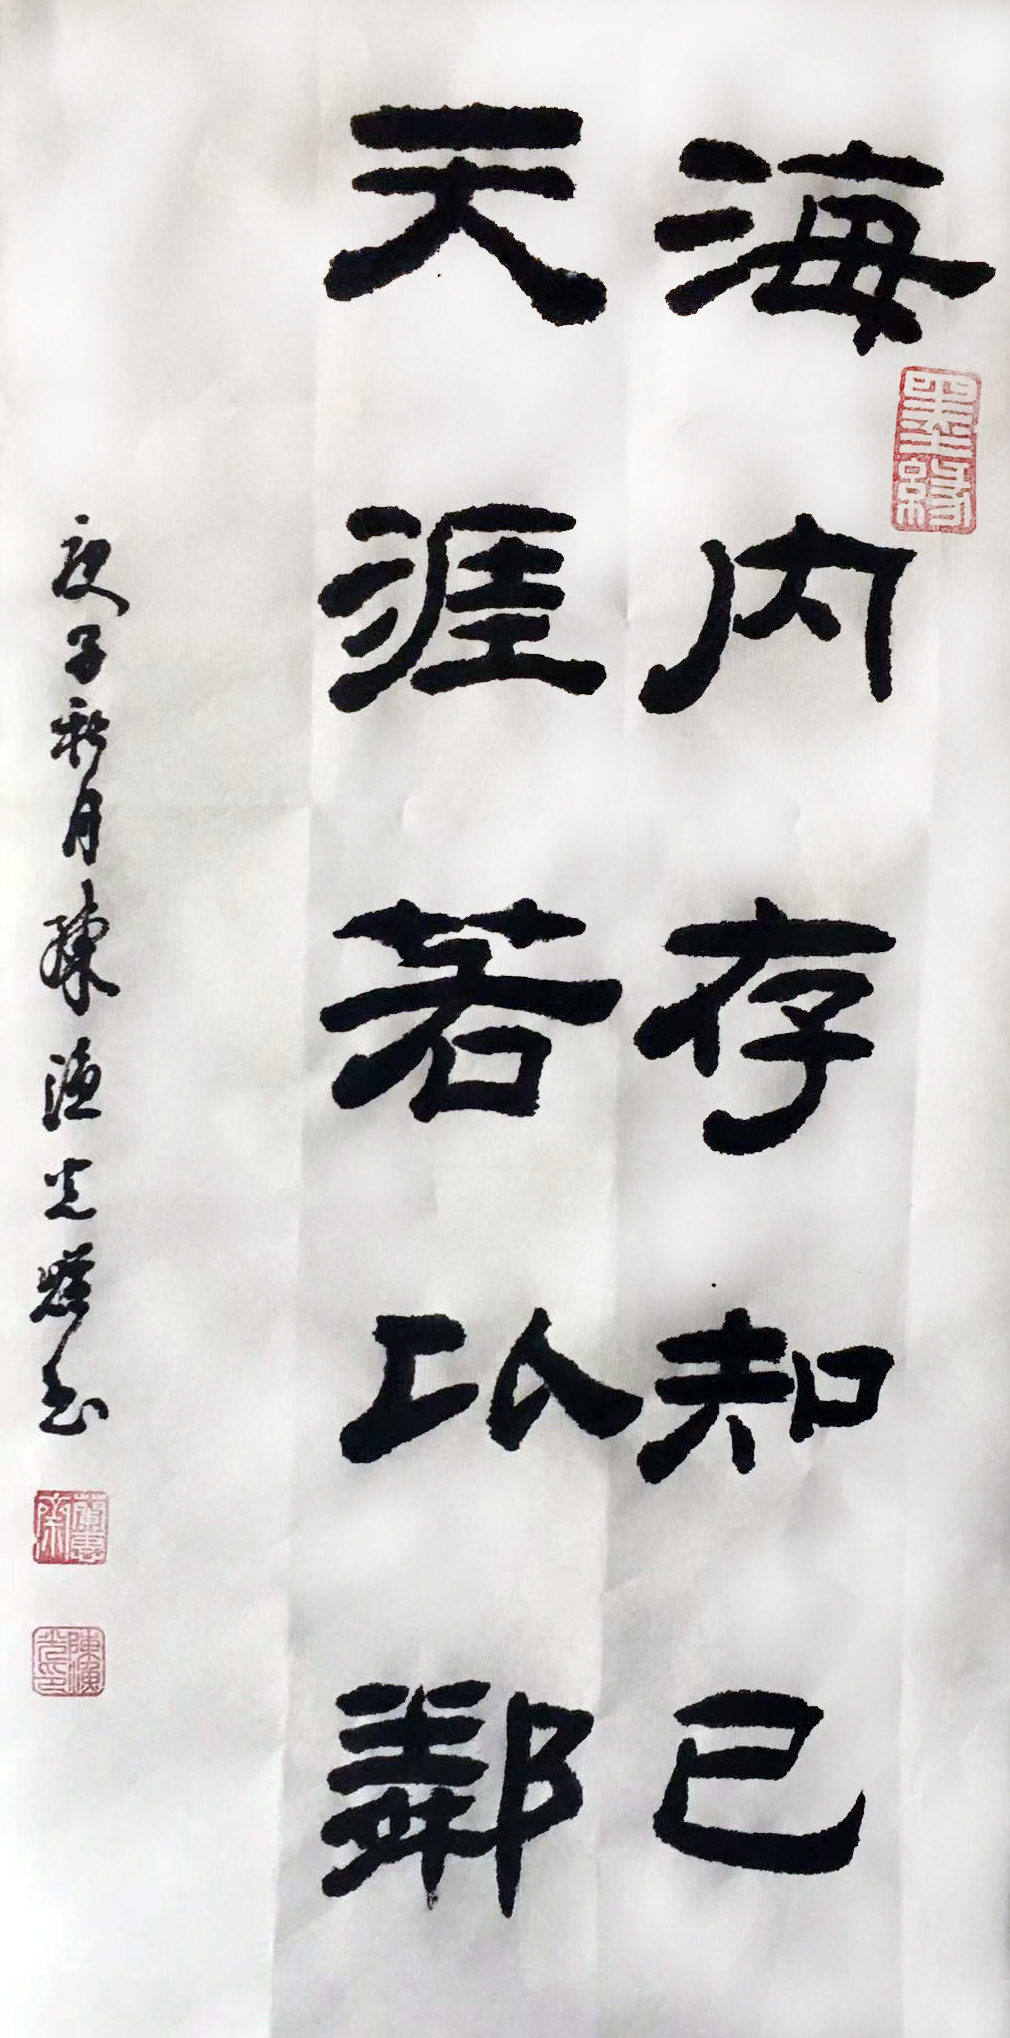 海内存知己
天涯若比鄰
庚子秋月陳光書
墨緣